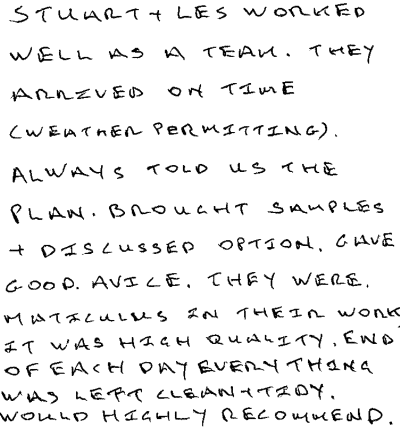 STUART + LES WORKED
WELL AS A TEAM. THEY
ARRIVED ON TIME
(WEATHER PERMITTING).
ALWAYS TOLD US THE
PLAN. BROUGHT SAMPLES
+ DISCUSSED OPTION. GAVE
GOOD. AVICE. THEY WERE.
MATICULUS IN THEIR WORK
IT WAS HIGH QUALITY. END
OF EACH DAY EVERYTHING
WAS LEFT CLEAN + TIDY.
WOULD HIGHLY RECOMMEND.